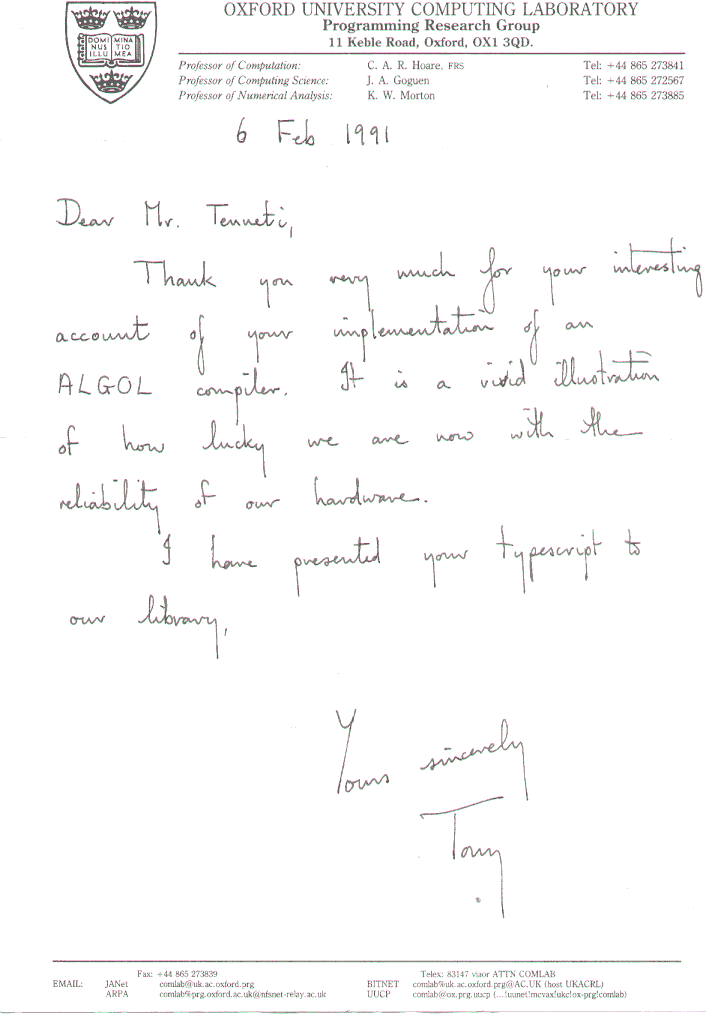 OXFORD UNIVERSITY COMPUTING LABORATORY
Programming Research Group
11 Keble Road, Oxford, OX1 3QD.
DOMI MINA
NUS TIO
ILLU MEA
Professor of Computation: C. A. R. Hoare, FRS Tel: +44 865 273841
Professor of Computing Science: J. A. Goguen Tel: +44 865 272567
Professor of Numerical Analysis: K. W. Morton Tel: +44 865 273885
6 Feb 1991
Dear Mr. Tenneti,
Thank you very much for your interesting
account of your implementation of an
ALGOL compiler. It is a vivid illustration
of how lucky we are now with the
reliability of our hardware.
I have presented your typescript to
our library.
Yours sincerely
Tony
Fax: +44 865 273839 Telex: 83147 viaor ATTN COMLAB
EMAIL: JANet comlab@uk.ac.oxford.prg BITNET comlab%uk.ac.oxford.prg@AC.UK (host UKACRL)
ARPA comlab%prg.oxford.ac.uk@nfsnet-relay.ac.uk UUCP comlab@ox.prg.uucp (...!uunet!mcvax!ukc!ox-prg!comlab)